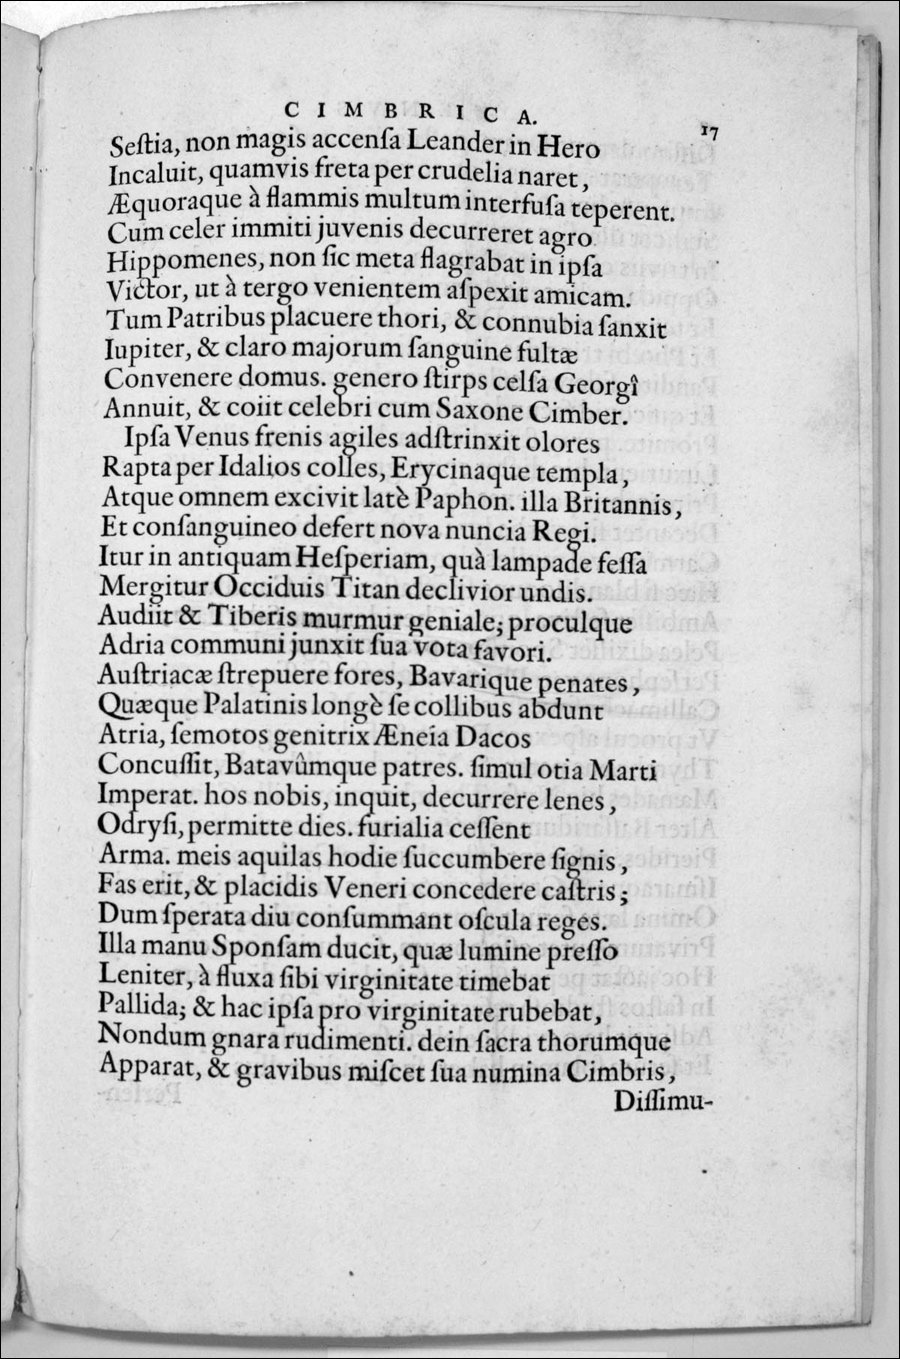 CIMBRICA. 17
Seſtia, non magis accenſa Leander in Hero
Incaluit, quamvis freta per crudelia naret,
Æquoraque à flammis multum interfuſa teperent.
Cum celer immiti juvenis decurreret agro
Hippomenes, non ſic meta flagrabat in ipſa
Victor, ut à tergo venientem aſpexit amicam.
Tum Patribus placuere thori, & connubia ſanxit
Iupiter, & claro majorum ſanguine fultæ
Convenere domus. genero ſtirps celſa Georgî
Annuit, & coiit celebri cum Saxone Cimber.
Ipſa Venus frenis agiles adſtrinxit olores
Rapta per Idalios colles, Erycinaque templa,
Atque omnem excivit latè Paphon. illa Britannis,
Et conſanguineo defert nova nuncia Regi.
Itur in antiquam Heſperiam, quà lampade feſſa
Mergitur Occiduis Titan declivior undis.
Audiit & Tiberis murmur geniale; proculque
Adria communi junxit ſua vota favori.
Auſtriacæ ſtrepuere fores, Bavarique penates,
Quæque Palatinis longè ſe collibus abdunt
Atria, ſemotos genitrix Æneia Dacos
Concuſſit, Batavûmque patres. ſimul otia Marti
Imperat. hos nobis, inquit, decurrere lenes,
Odryſi, permitte dies. furialia ceſſent
Arma. meis aquilas hodie ſuccumbere ſignis,
Fas erit, & placidis Veneri concedere caſtris;
Dum ſperata diu conſummant oſcula reges.
Illa manu Sponſam ducit, quæ lumine preſſo
Leniter, à fluxa ſibi virginitate timebat
Pallida; & hac ipſa pro virginitate rubebat,
Nondum gnara rudimenti. dein ſacra thorumque
Apparat, & gravibus miſcet ſua numina Cimbris,
Diſſimu-